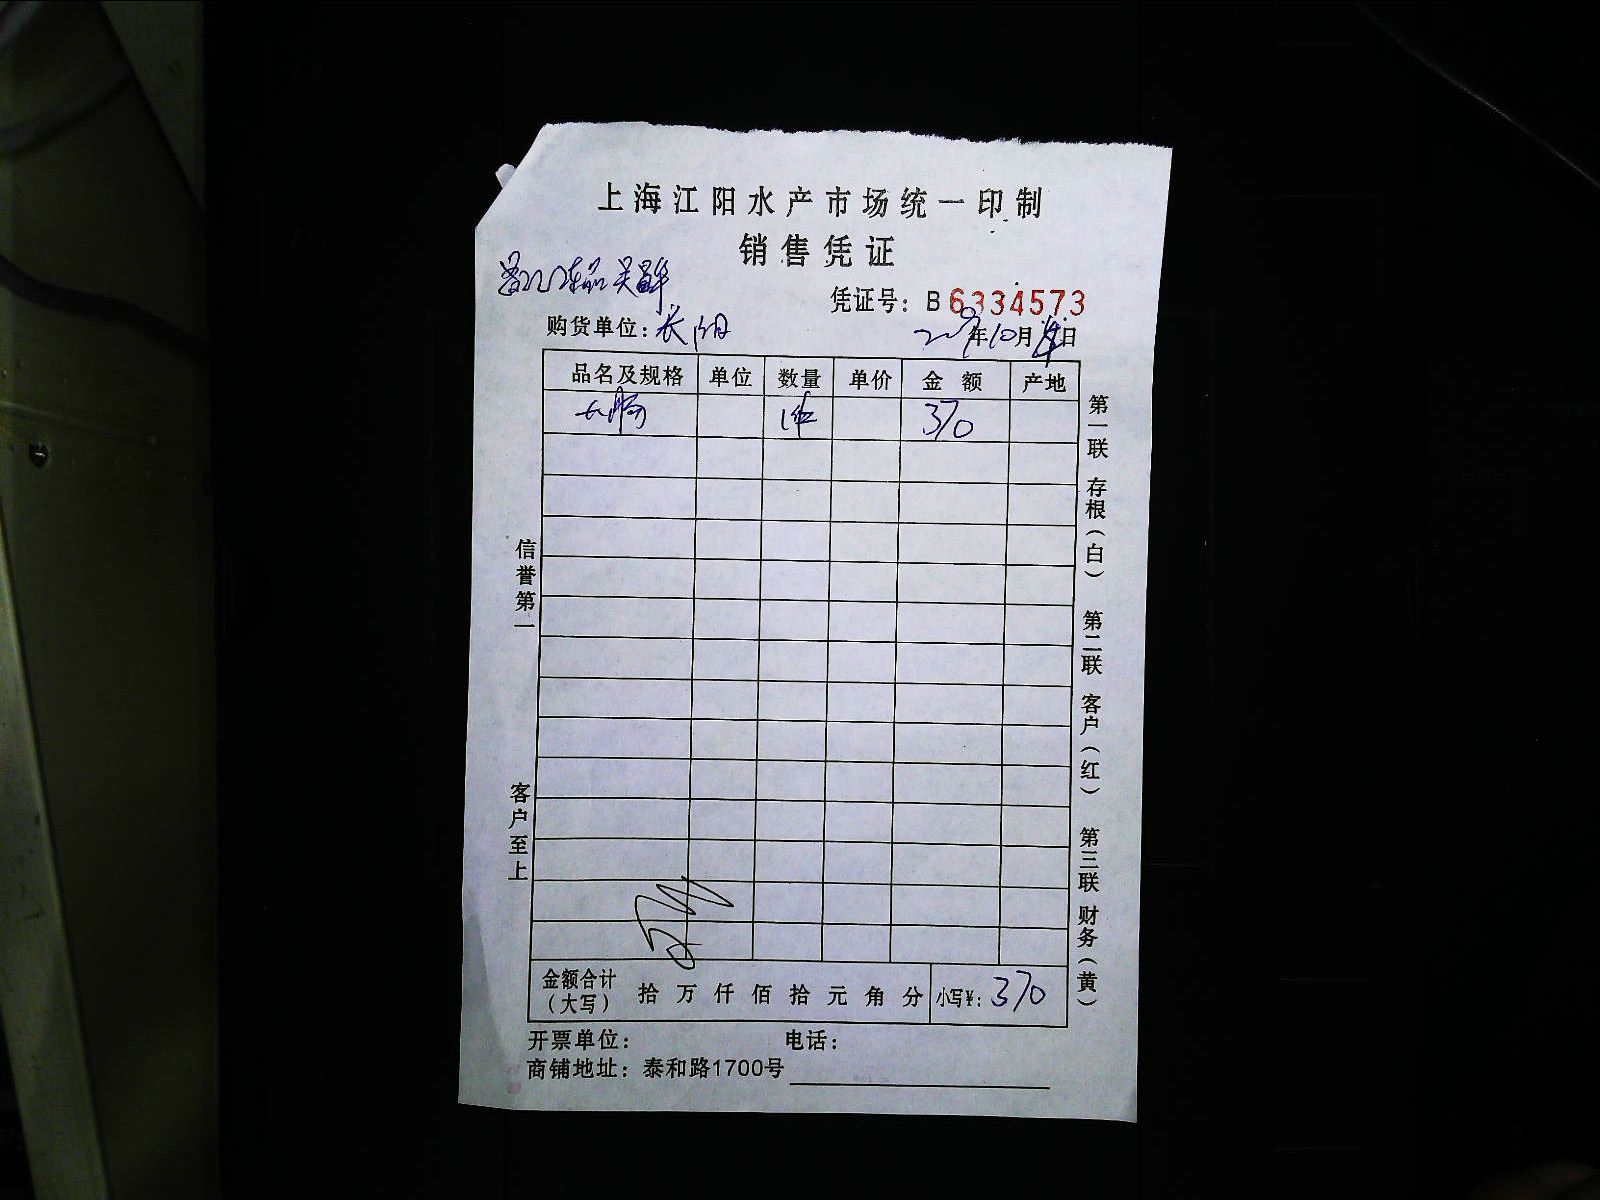 上海江阳水产市场统一印制
销售凭证
冻品
凭证号：B 6334573
购货单位：长阳
年10月 日
品名及规格 单位 数量 单价 金额 产地
1件 370
信誉第一
客户至上
第一联 存根（白） 第二联 客户（红） 第三联 财务（黄）
金额合计（大写） 拾 万 仟 佰 拾 元 角 分 小写¥：370
开票单位： 电话：
商铺地址：泰和路1700号